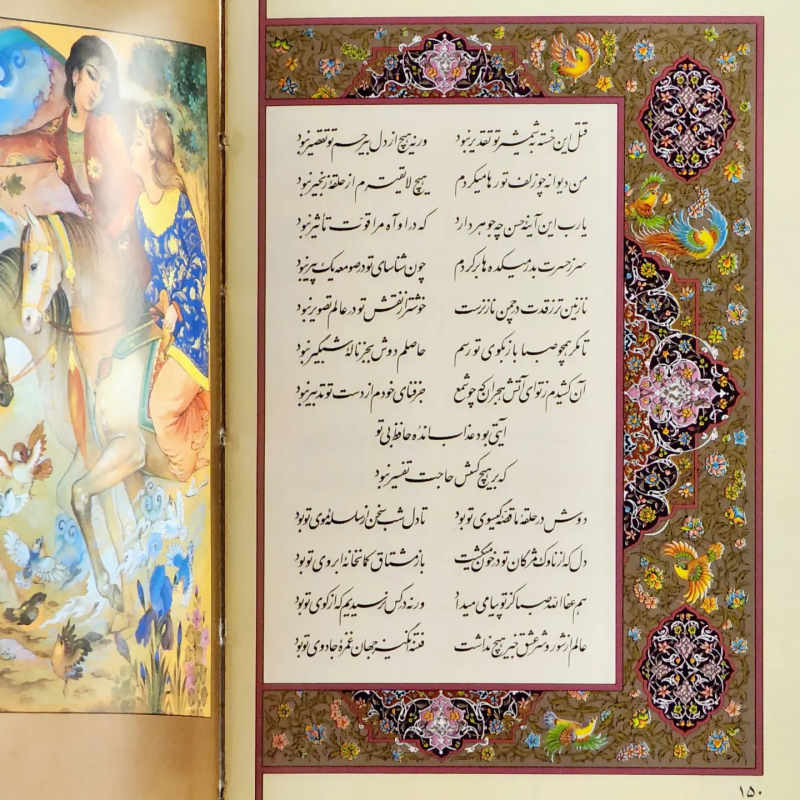 قتل این خسته به شمشیر تو تقدیر نبود ورنه هیچ از دل بیرحم تو تقصیر نبود
من دیوانه چو زلف تو رها میکردم هیچ لایقترم از حلقهٔ زنجیر نبود
یارب این آینهٔ حسن چه جوهر دارد که در او آه مرا قوّت تأثیر نبود
سر ز حسرت بدر میکده ها برکردم چون شناسای تو در صومعه یک پیر نبود
نازنین تر ز قدت در چمن ناز نرست خوشتر از نقش تو در عالم تصویر نبود
تا مگر همچو صبا باز بکوی تو رسم حاصلم دوش بجز نالهٔ شبگیر نبود
آن کشیدم ز تو ای آتش هجران که چو شمع جز فنای خودم از دست تو تدبیر نبود
آیتی بود عذاب انده حافظ بی تو
که بر هیچ کسش حاجت تفسیر نبود
دوش در حلقهٔ ما قصّهٔ گیسوی تو بود تا دل شب سخن از سلسلهٔ موی تو بود
دل که از ناوک مژگان تو در خون میگشت باز مشتاق کمانخانهٔ ابروی تو بود
هم عفا الله صبا کز تو پیامی میداد ورنه در کس نرسیدیم که از کوی تو بود
عالم از شور و شر عشق خبر هیچ نداشت فتنه انگیز جهان غمزهٔ جادوی تو بود
۱۵۰